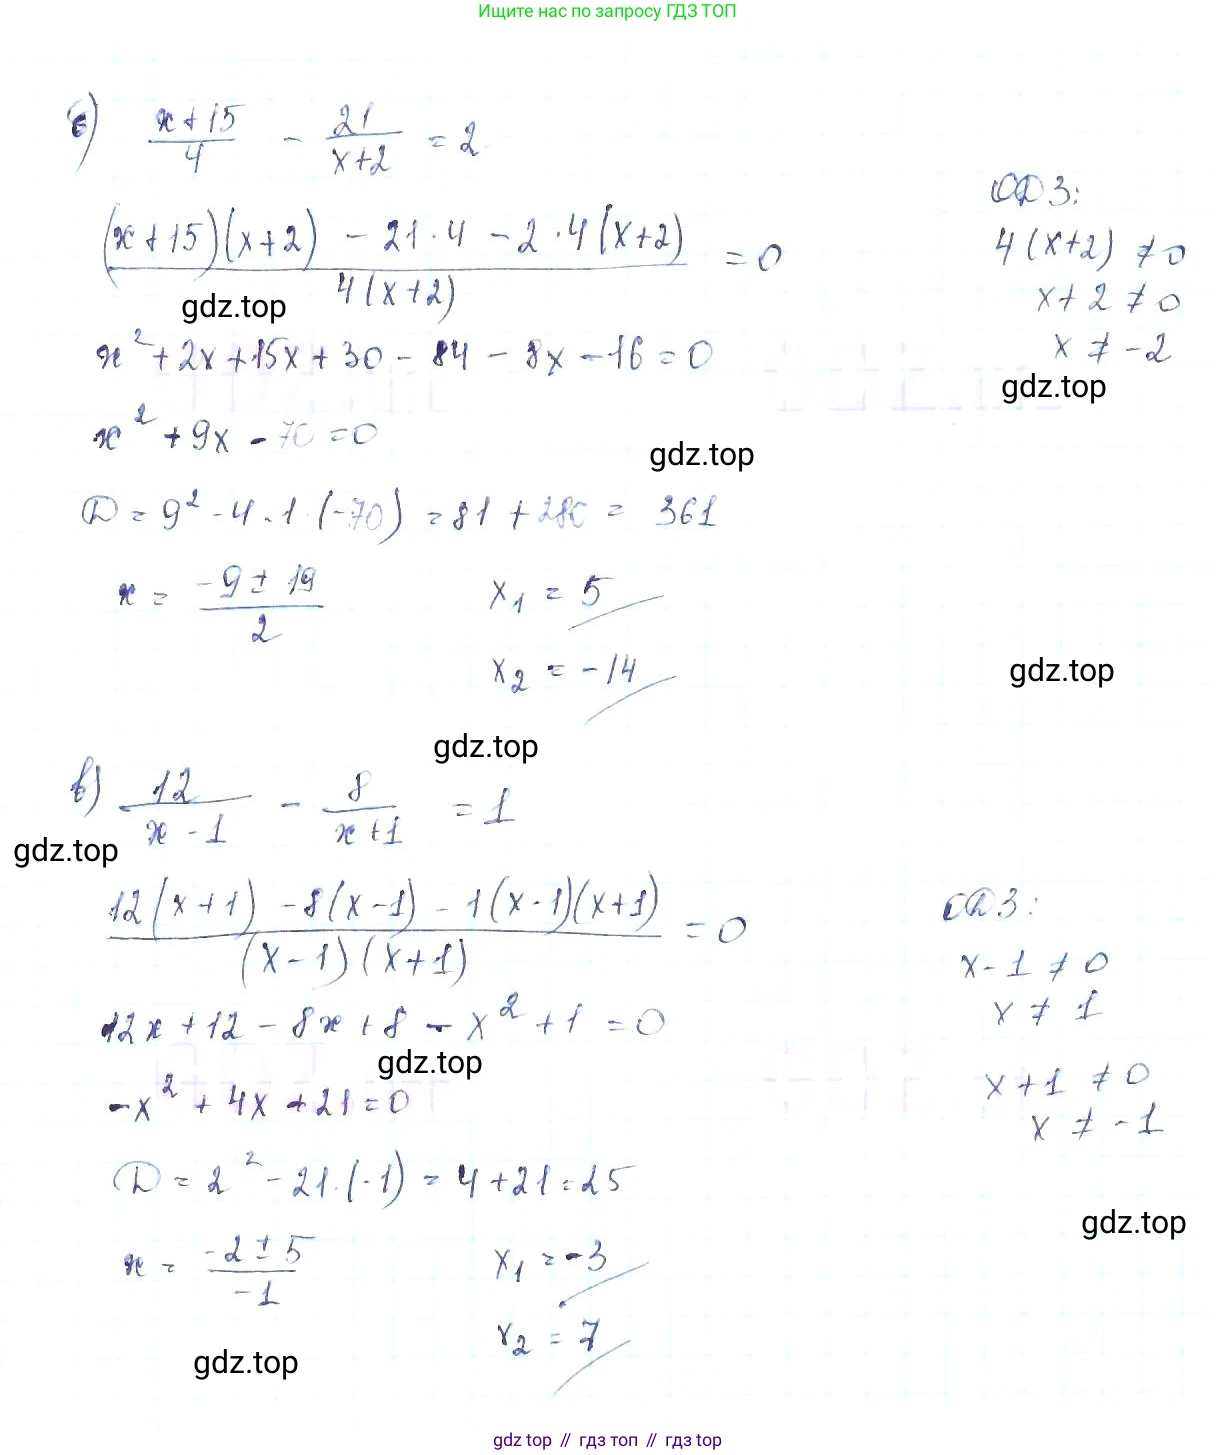 Ищите нас по запросу ГДЗ ТОП
б) (x+15)/4 - 21/(x+2) = 2
ОДЗ:
((x+15)(x+2) - 21·4 - 2·4(x+2))/(4(x+2)) = 0
4(x+2) ≠ 0
gdz.top
x+2 ≠ 0
x² + 2x + 15x + 30 - 84 - 8x - 16 = 0
x ≠ -2
gdz.top
x² + 9x - 70 = 0
gdz.top
D = 9² - 4·1·(-70) = 81 + 280 = 361
x = (-9 ± 19)/2
x₁ = 5
x₂ = -14
gdz.top
gdz.top
в) 12/(x-1) - 8/(x+1) = 1
gdz.top
(12(x+1) - 8(x-1) - 1(x-1)(x+1))/((x-1)(x+1)) = 0
ОДЗ:
x-1 ≠ 0
x ≠ 1
12x + 12 - 8x + 8 - x² + 1 = 0
gdz.top
x+1 ≠ 0
-x² + 4x + 21 = 0
x ≠ -1
D = 2² - 21·(-1) = 4 + 21 = 25
gdz.top
x = (-2 ± 5)/-1
x₁ = -3
x₂ = 7
gdz.top
gdz.top // гдз топ // гдз.top